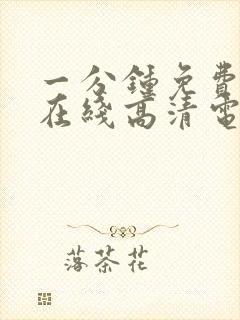 一分鍾免費
在綫高清電
落茶花